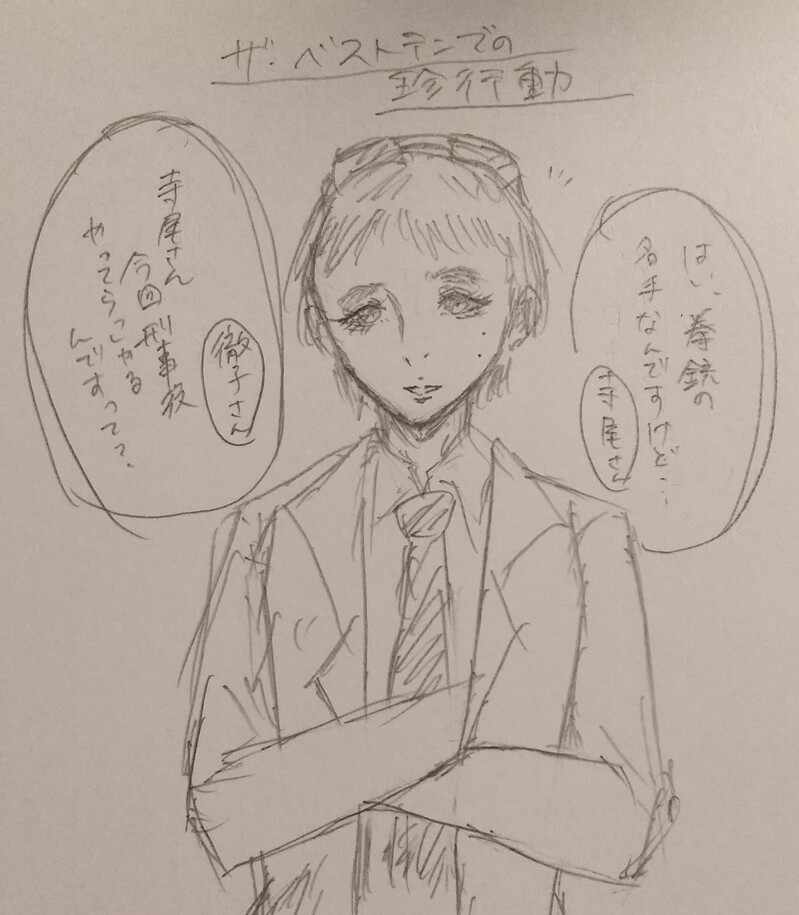 ザ・ベストテンでの
珍行動
徹子さん
寺尾さん
今回刑事役
やってらっしゃる
んですって?
はい、拳銃の
名手なんですけど…
寺尾さん